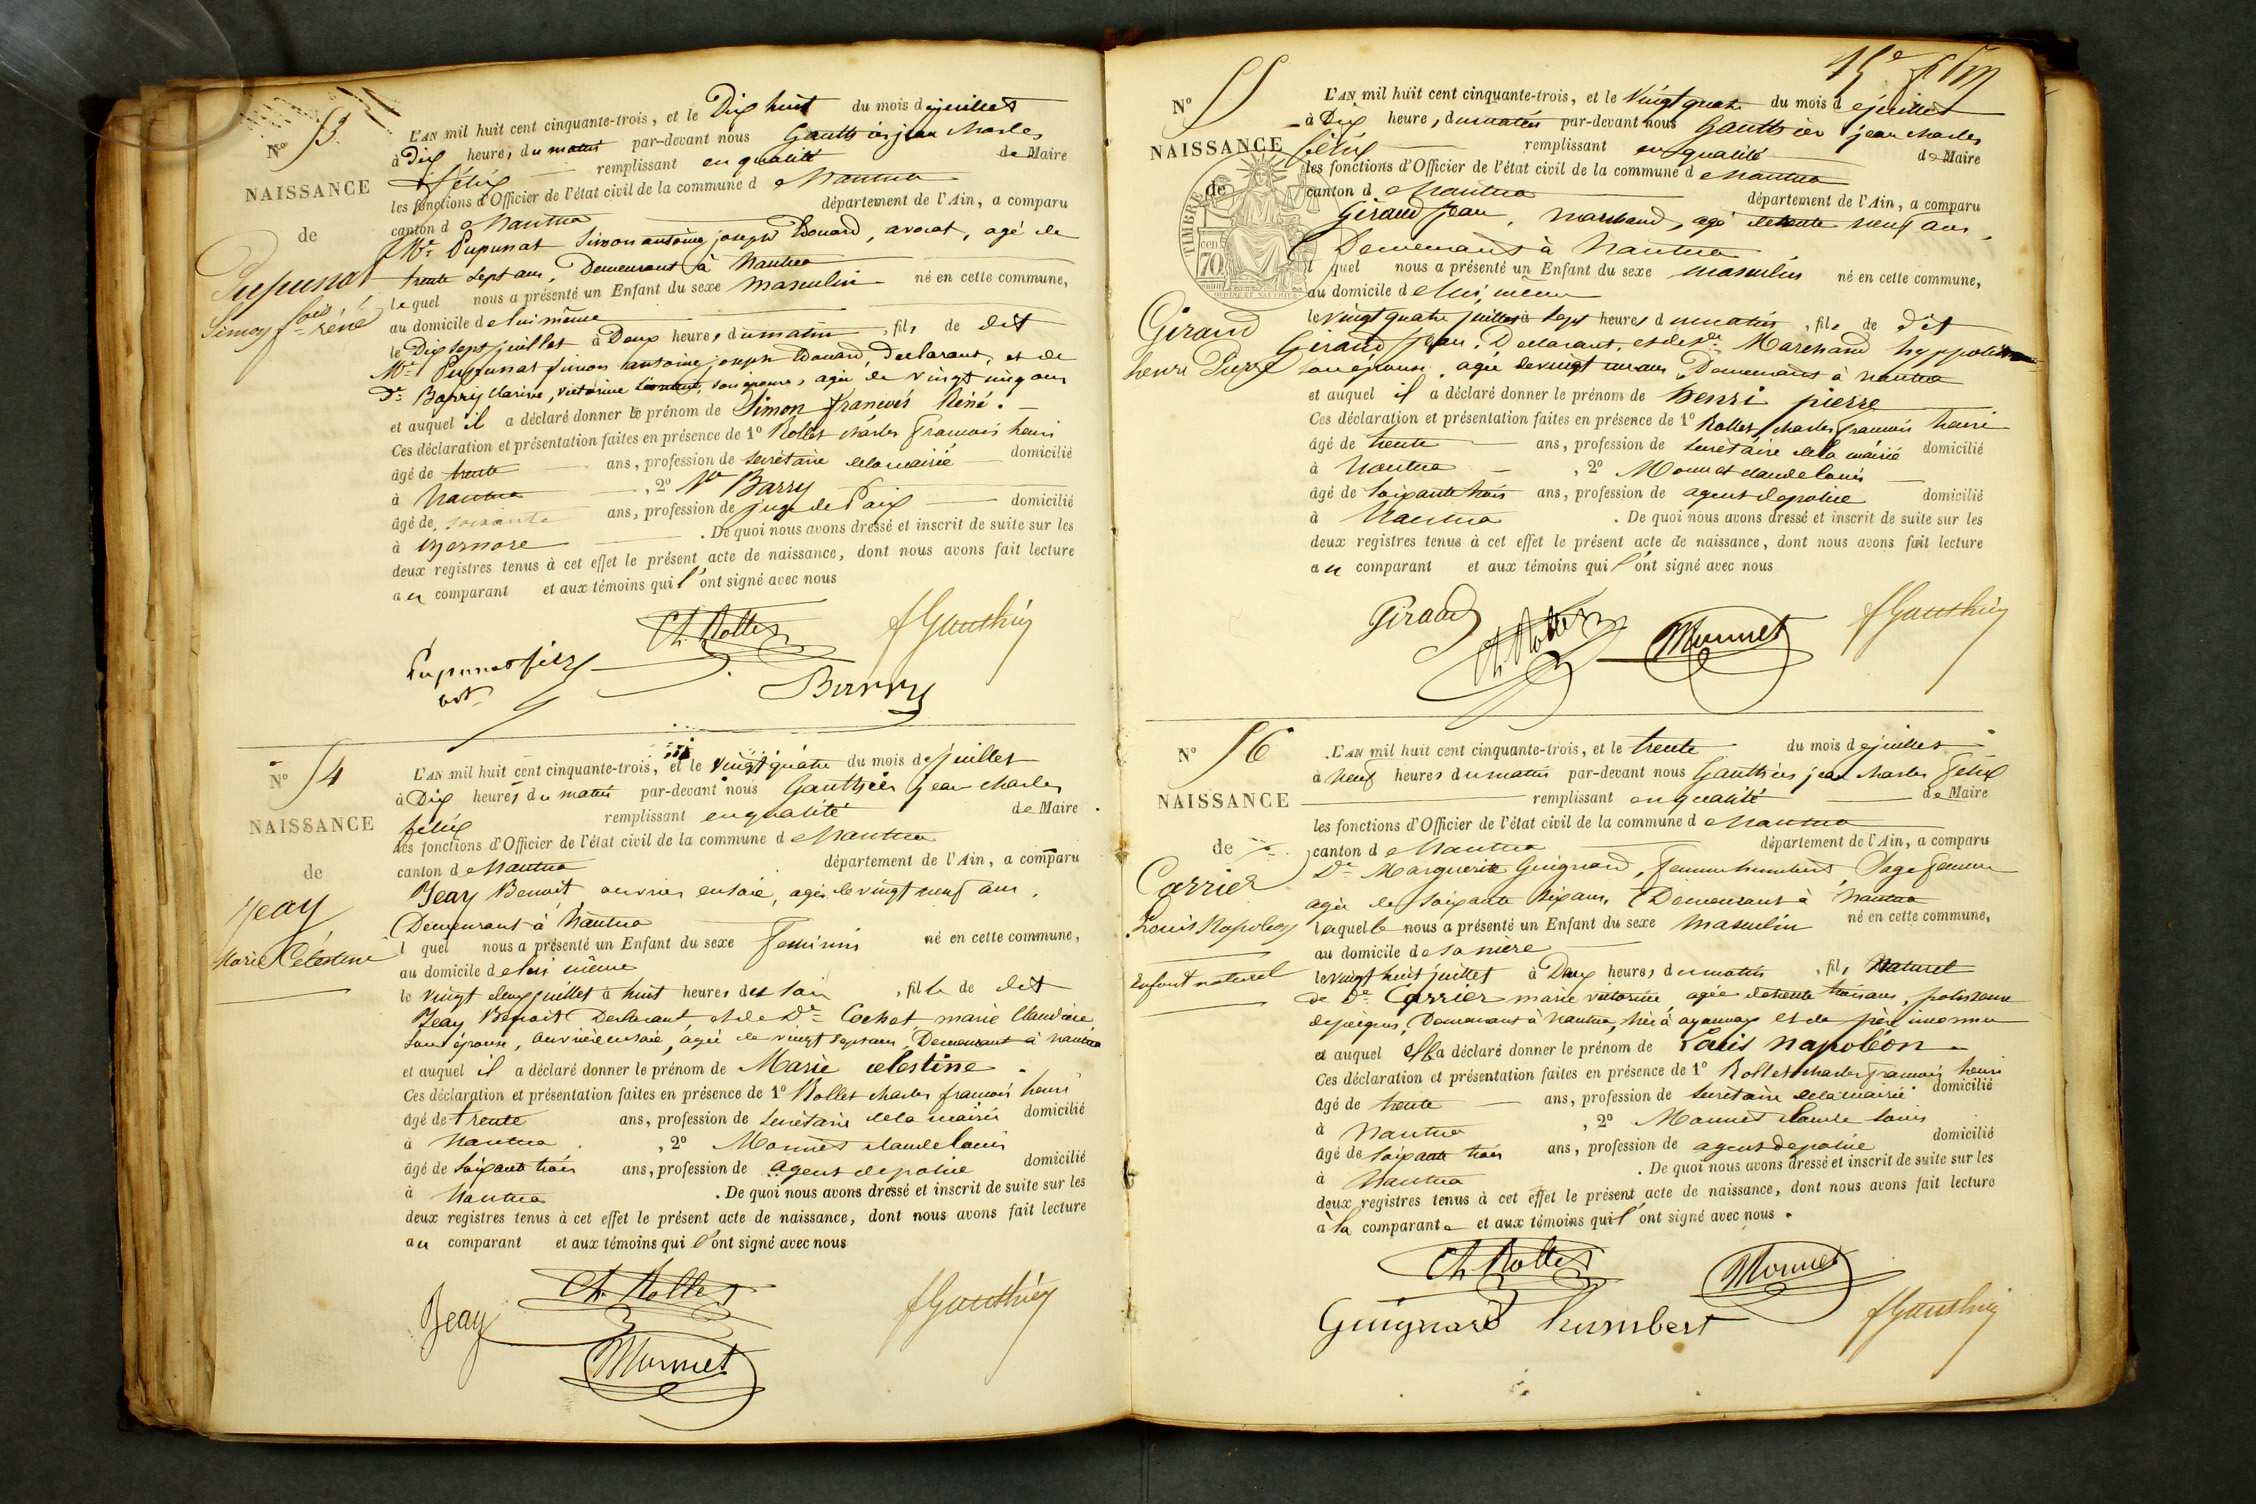 Nº 53.
NAISSANCE
de
Pupunat
Simon fois réné
L'AN mil huit cent cinquante-trois, et le Dix huit du mois de juillet
à Dix heures, du matin par-devant nous Gauthier jean charles
félix remplissant en qualité de Maire
les fonctions d'Officier de l'état civil de la commune de Nantua
canton de Nantua département de l'Ain, a comparu
Mr Pupunat Simon antoine joseph Edouard, avocat, agé de
trente sept ans, Demeurant à Nantua
lequel nous a présenté un Enfant du sexe masculin né en cette commune,
au domicile de lui même
le Dix sept juillet à Deux heures, du matin, fils de dit
Mr Pupunat simon antoine joseph Edouard, Declarant, et de
De Barry Marine, victorine son épouse, agée de vingt cinq ans
et auquel il a déclaré donner le prénom de Simon françois Réné.
Ces déclaration et présentation faites en présence de 1º Rollet charles françois henri
âgé de trente ans, profession de secrétaire de la mairie domicilié
à Nantua, 2º Mr Barry
âgé de soixante ans, profession de juge de Paix domicilié
à izernore. De quoi nous avons dressé et inscrit de suite sur les
deux registres tenus à cet effet le présent acte de naissance, dont nous avons fait lecture
au comparant et aux témoins qui l'ont signé avec nous
Ch. Rollet
fGauthier
Pupunat fils
avt
Barry
Nº 54
NAISSANCE
de
Jeay
Marie Célestine
L'AN mil huit cent cinquante-trois, et le vingt quatre du mois de juillet
à Dix heures du matin par-devant nous Gauthier jean charles
félix remplissant en qualité de Maire
les fonctions d'Officier de l'état civil de la commune de Nantua
canton de Nantua département de l'Ain, a comparu
Jeay Benoit, ouvrier en soie, agé de vingt neuf ans,
Demeurant à Nantua
lquel nous a présenté un Enfant du sexe feminin né en cette commune,
au domicile de lui même
le vingt deux juillet à huit heures du soir, fille de dit
Jeay Benoit Declarant et de De Cochet marie Claudine
son épouse, ouvrière en soie, agée de vingt sept ans, Demeurant à nantua
et auquel il a déclaré donner le prénom de Marie celestine
Ces déclaration et présentation faites en présence de 1º Rollet charles françois henri
âgé de trente ans, profession de secrétaire de la mairie domicilié
à Nantua, 2º Monnet claude louis
âgé de soixante trois ans, profession de agent de police domicilié
à Nantua. De quoi nous avons dressé et inscrit de suite sur les
deux registres tenus à cet effet le présent acte de naissance, dont nous avons fait lecture
au comparant et aux témoins qui l'ont signé avec nous
Ch. Rollet
Jeay
fGauthier
Monnet
15e
Nº 55
NAISSANCE
de
TIMBRE
70
Giraud
henri Pierre
L'AN mil huit cent cinquante-trois, et le vingt quatre du mois de juillet
à Dix heure, du matin par-devant nous Gauthier jean charles
félix remplissant en qualité de Maire
les fonctions d'Officier de l'état civil de la commune de Nantua
canton de Nantua département de l'Ain, a comparu
Giraud Jean, marchand, agé de trente neuf ans,
Demeurant à Nantua
lquel nous a présenté un Enfant du sexe masculin né en cette commune,
au domicile de lui même
le vingt quatre juillet à sept heures du matin, fils de dit
Giraud Jean, Declarant, et de De Marchand hyppolite
son épouse, agée de vingt un ans, Demeurant à nantua
et auquel il a déclaré donner le prénom de henri pierre
Ces déclaration et présentation faites en présence de 1º Rollet charles françois henri
âgé de trente ans, profession de secrétaire de la mairie domicilié
à Nantua, 2º Monnet claude louis
âgé de soixante trois ans, profession de agent de police domicilié
à Nantua. De quoi nous avons dressé et inscrit de suite sur les
deux registres tenus à cet effet le présent acte de naissance, dont nous avons fait lecture
au comparant et aux témoins qui l'ont signé avec nous
Giraud
Ch. Rollet
Monnet
fGauthier
Nº 56
NAISSANCE
de
Carrier
Louis Napoléon
Enfant naturel
L'AN mil huit cent cinquante-trois, et le trente du mois de juillet
à neuf heures du matin par-devant nous Gauthier jean charles félix
remplissant en qualité de Maire
les fonctions d'Officier de l'état civil de la commune de Nantua
canton de Nantua département de l'Ain, a comparu
De Marguerite Guignard, femme humbert, Sage femme
agée de soixante six ans, Demeurant à Nantua
laquelle nous a présenté un Enfant du sexe masculin né en cette commune,
au domicile de sa mère
le vingt huit juillet à Deux heures du matin, fils Naturel
de De Carrier marie victorine agée de trente trois ans, polisseuse
de peignes, Demeurant à nantua, née à oyonnax et de père inconnu
et auquel Elle a déclaré donner le prénom de Louis napoléon
Ces déclaration et présentation faites en présence de 1º Rollet charles françois henri
âgé de trente ans, profession de secrétaire de la mairie domicilié
à Nantua, 2º Monnet claude louis
âgé de soixante trois ans, profession de agent de police domicilié
à Nantua. De quoi nous avons dressé et inscrit de suite sur les
deux registres tenus à cet effet le présent acte de naissance, dont nous avons fait lecture
à la comparante et aux témoins qui l'ont signé avec nous.
Ch. Rollet
Monnet
Guignard humbert
fGauthier